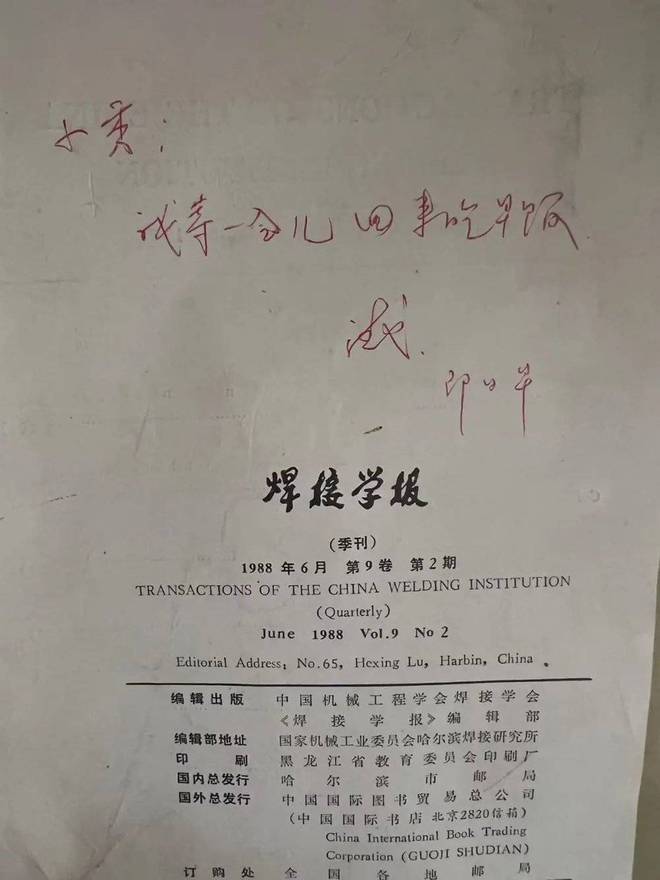 小黄：
我等一会儿回来吃早饭
即日早
焊接学报
(季刊)
1988 年 6 月 第 9 卷 第 2 期
TRANSACTIONS OF THE CHINA WELDING INSTITUTION
(Quarterly)
June 1988 Vol.9 No 2
Editorial Address: No.65, Hexing Lu, Harbin, China.
编辑出版 中国机械工程学会焊接学会
《焊接学报》编辑部
编辑部地址 国家机械工业委员会哈尔滨焊接研究所
印刷 黑龙江省教育委员会印刷厂
国内总发行 哈尔滨市邮局
国外总发行 中国国际图书贸易总公司
(中国国际书店 北京2820信箱)
China International Book Trading
Corporation (GUOJI SHUDIAN)
订购处 全国各地邮局